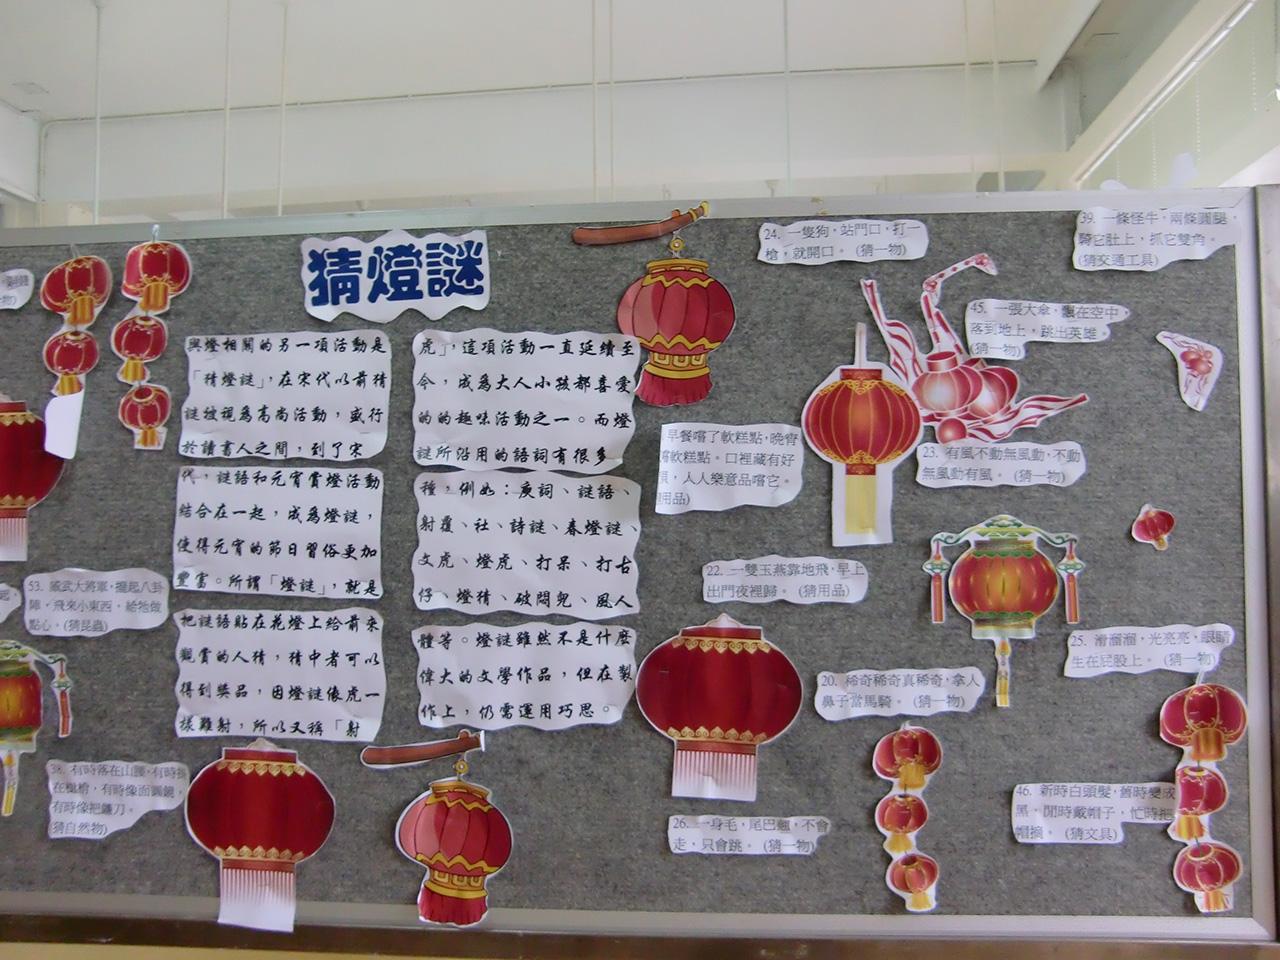 猜燈謎
與燈相關的另一項活動是
「猜燈謎」，在宋代以前猜
謎被視為高尚活動，盛行
於讀書人之間，到了宋
代，謎語和元宵賞燈活動
結合在一起，成為燈謎，
使得元宵的節日習俗更加
豐富。所謂「燈謎」，就是
把謎語貼在花燈上給前來
觀賞的人猜，猜中者可以
得到獎品，因燈謎像虎一
樣難射，所以又稱「射
虎」，這項活動一直延續至
今，成為大人小孩都喜愛
的的趣味活動之一。而燈
謎所沿用的語詞有很多
種，例如：庾詞、謎語、
射覆、社、詩謎、春燈謎、
文虎、燈虎、打呆、打古
仔、燈猜、破悶兒、風人
體等。燈謎雖然不是什麼
偉大的文學作品，但在製
作上，仍需運用巧思。
53. 威武大將軍，擺起八卦
陣，飛來小東西，給牠做
點心。(猜昆蟲)
38. 有時落在山腰，有時掛
在樹梢，有時像面圓鏡，
有時像把鐮刀。
猜自然物)
24. 一隻狗，站門口，打一
槍，就開口。(猜一物)
39. 一條怪牛，兩條圓腿，
騎它肚上，抓它雙角。
(猜交通工具)
45. 一張大傘，飄在空中
落到地上，跳出英雄。
(猜一物)
早餐嚐了軟糕點，晚宵
嚐軟糕點。口裡藏有好
人人樂意品嚐它。
用品)
23. 有風不動無風動，不動
無風動有風。(猜一物)
22. 一雙玉燕靠地飛，早上
出門夜裡歸。(猜用品)
20. 稀奇稀奇真稀奇，拿人
鼻子當馬騎。(猜一物)
25. 滑溜溜，光亮亮，眼睛
生在屁股上。(猜一物)
26. 一身毛，尾巴翹，不會
走，只會跳。(猜一物)
46. 新時白頭髮，舊時變成
黑，閒時戴帽子，忙時把
帽摘。(猜文具)